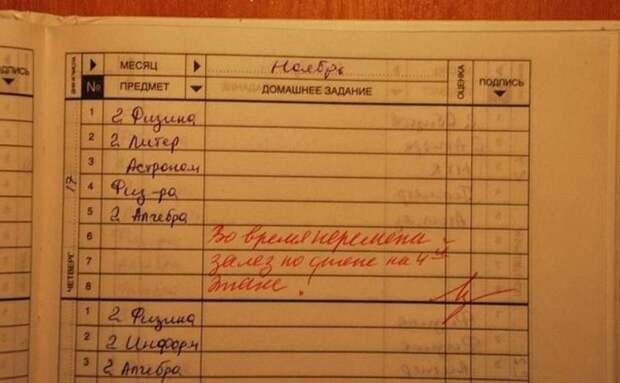 МЕСЯЦ Ноябрь
№ ПРЕДМЕТ ДОМАШНЕЕ ЗАДАНИЕ ОЦЕНКА ПОДПИСЬ
1 2 Физика
2 2 Литер
3 Астроном
4 Физ-ра
5 2 Алгебра
6 Во время перемены
7 залез по стене на 4-й
8 этаж!
ЧЕТВЕРГ 17
1 2 Физика
2 2 Информ
3 2 Алгебра